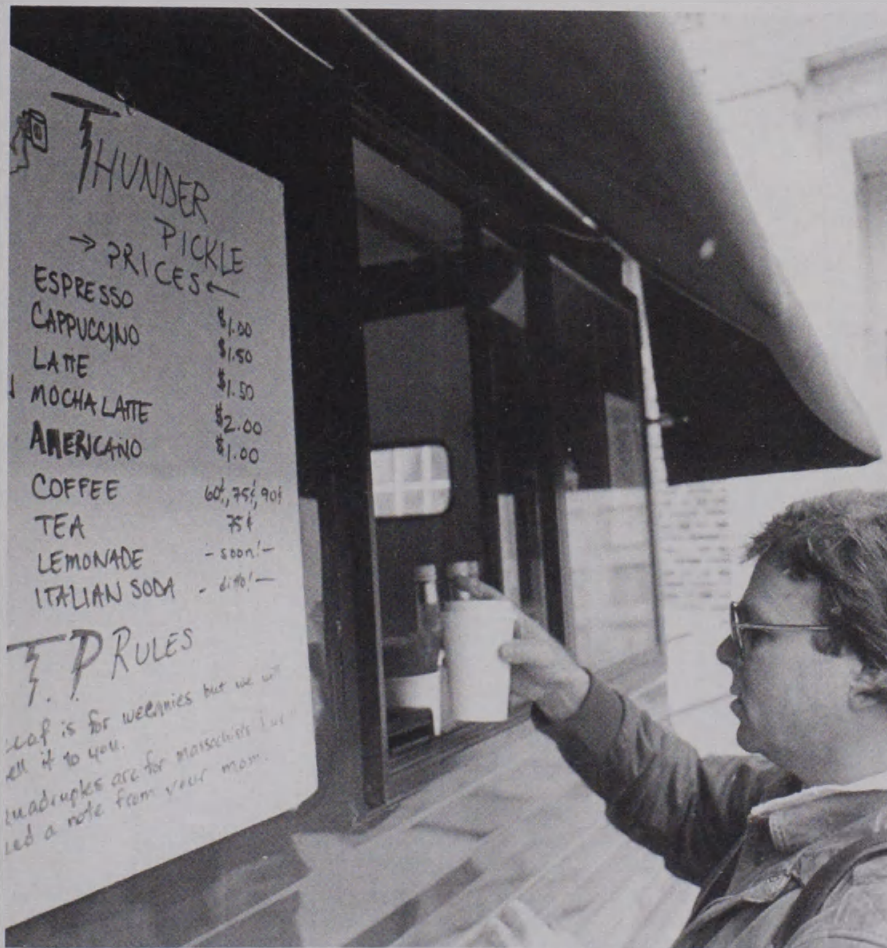 THUNDER
PICKLE
→ PRICES ←
ESPRESSO $1.00
CAPPUCCINO $1.50
LATTE $1.50
MOCHA LATTE $2.00
AMERICANO $1.00
COFFEE 60¢, 75¢, 90¢
TEA 75¢
LEMONADE - soon! -
ITALIAN SODA - ditto! -
T.P RULES
is for weenies but we will
it to you.
are for
a note from your mom.